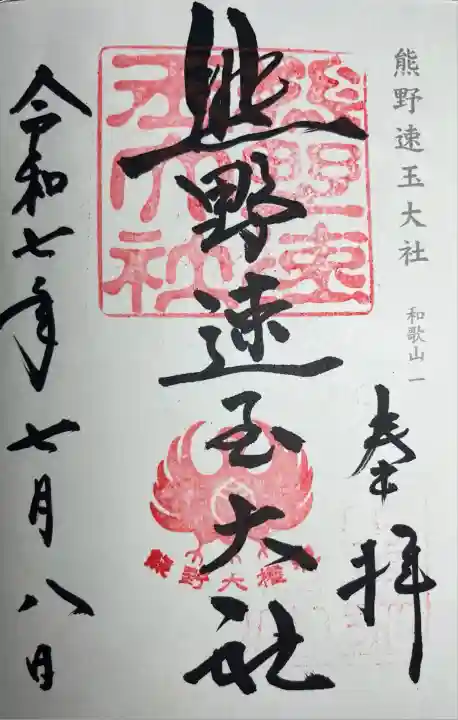 熊野速玉大社
和歌山 一
奉拝
熊野速玉大社
熊野速玉大社
熊野大権
令和七年七月八日